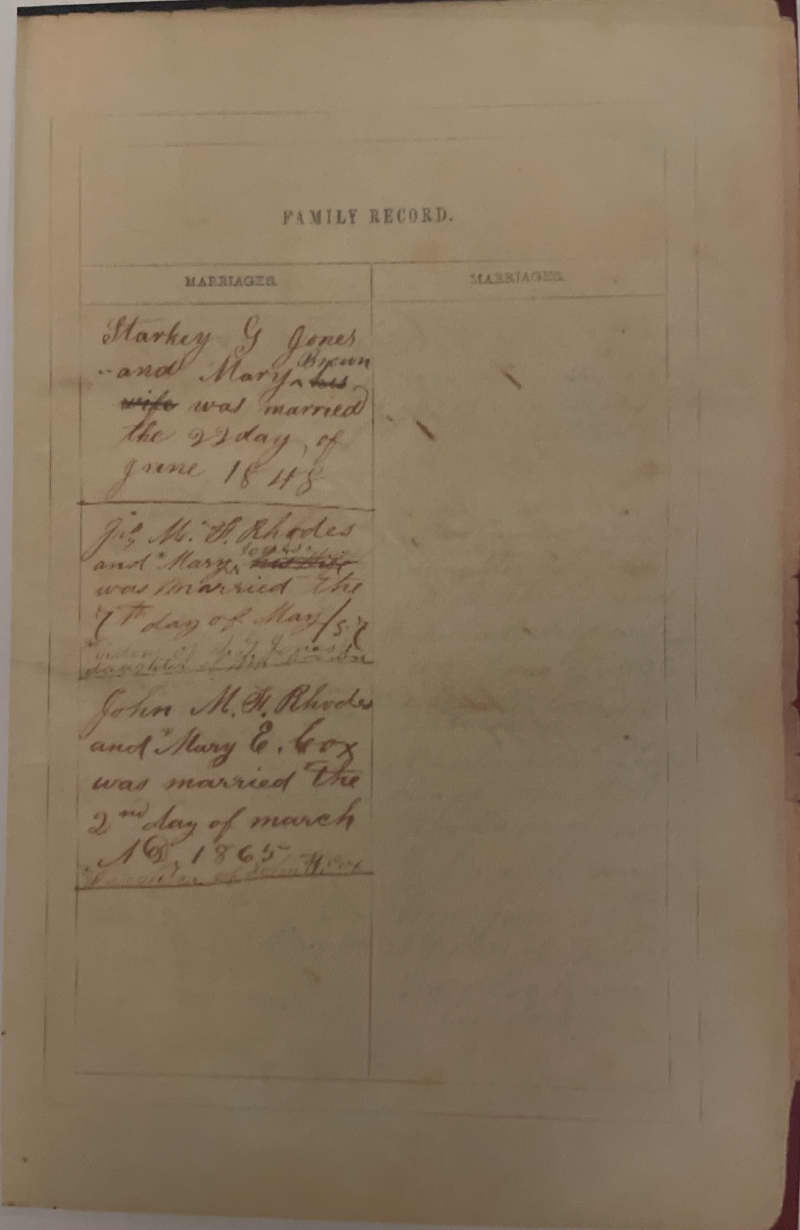 FAMILY RECORD.
MARRIAGES.
MARRIAGES.
Starkey G Jones
Brown
and Mary ^ his
wife was married
the 22 day of
June 1848
Jno M. F. Rhodes
Jones
and Mary ^ his wife
was married the
7th day of May /57
daughter of
John M. F. Rhodes
and Mary E. Cox
was married the
2nd day of march
AD, 1865
Daughter of John Cox